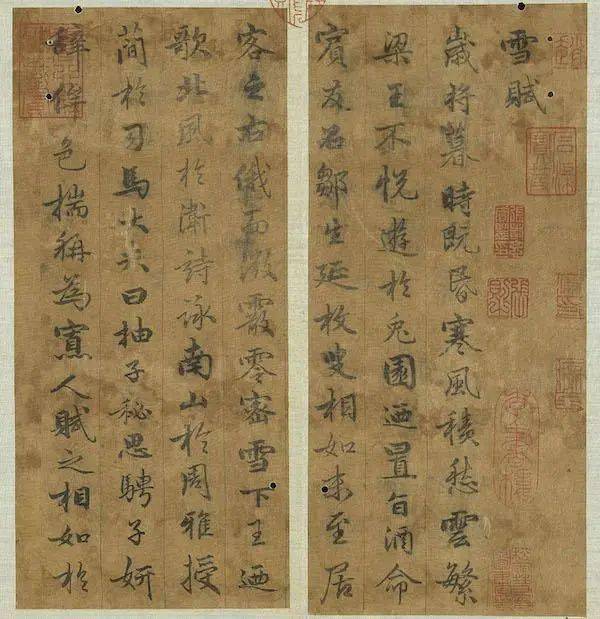 雪賦
歲將暮時既昏寒風積愁雲繁
梁王不悅遊於兔園迺置旨酒命
賓友召鄒生延枚叟相如末至居
客之右俄而微霰零密雪下王迺
歌北風於衛詩詠南山於周雅授
簡於司馬大夫曰抽子秘思騁子妍
辭侔色揣稱為寡人賦之相如於